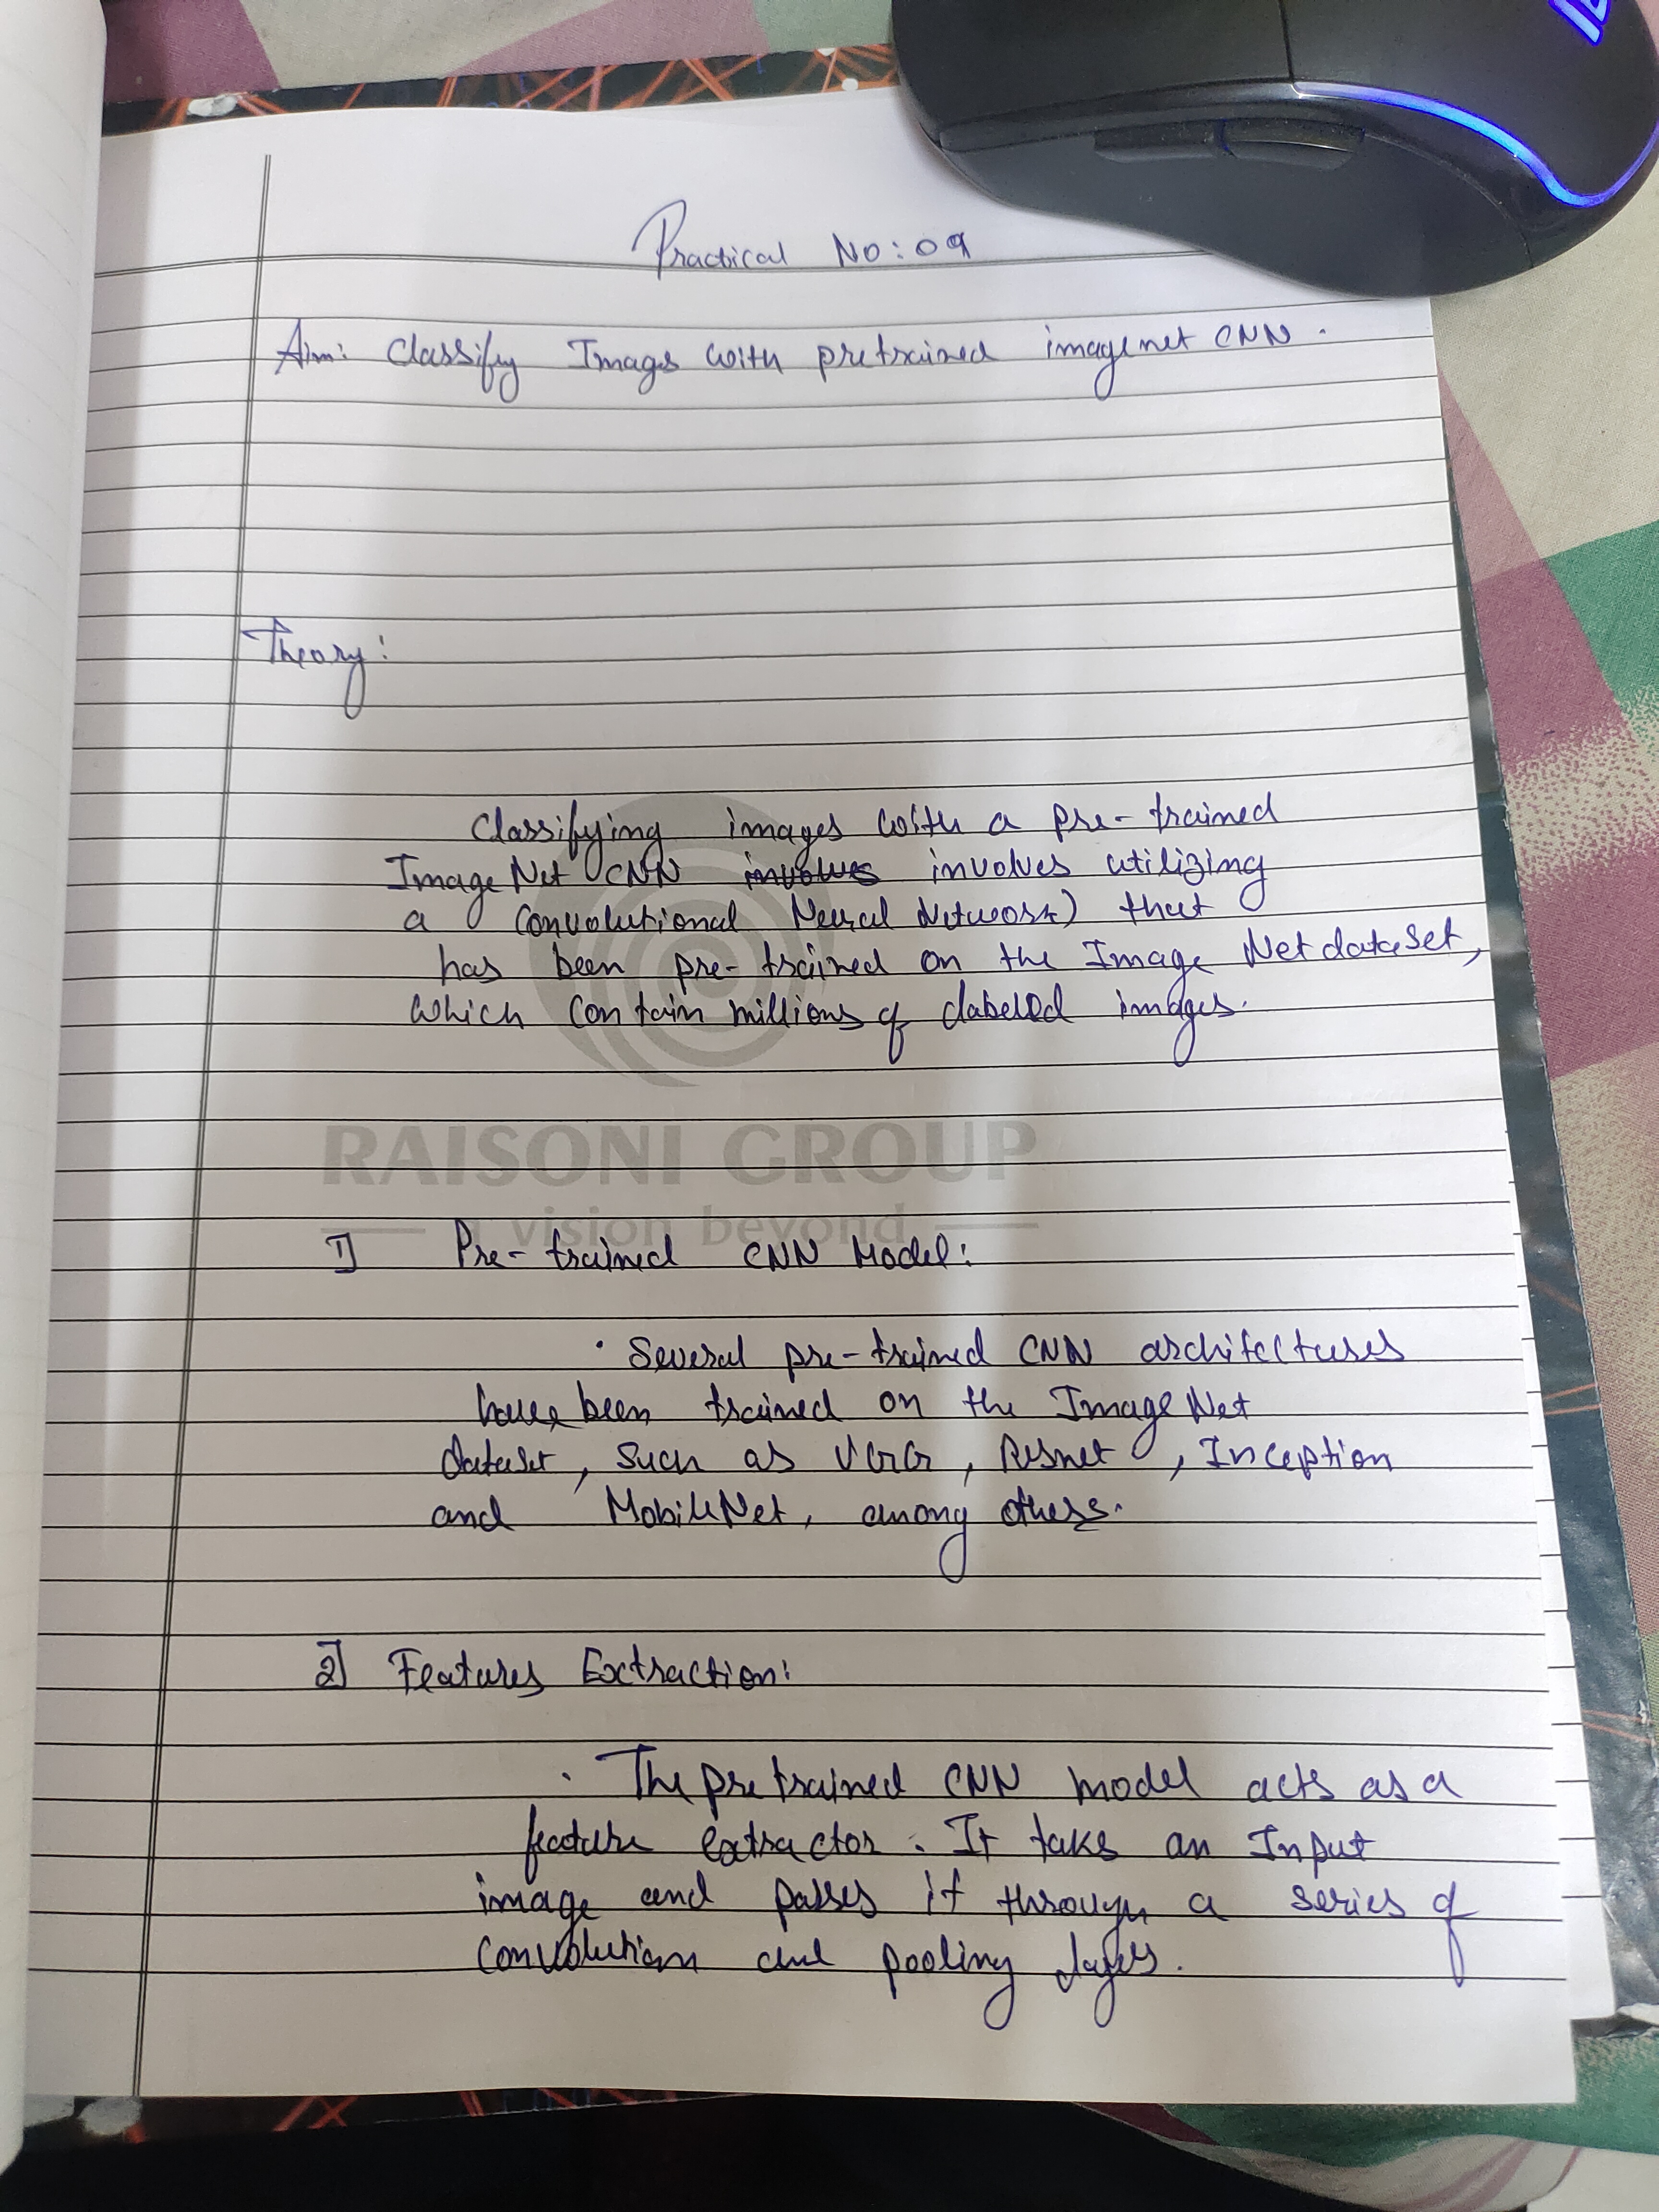 Practical No: 09
Aim: Classify Images with pretrained imagenet CNN.
Theory:
Classifying images with a pre-trained
ImageNet CNN involves involves utilizing
a Convolutional Neural Network) that
has been pre-trained on the Image Net dataset,
which contain millions of labeled images.
RAISONI GROUP
a vision beyond
1] Pre-trained CNN Model:
• Several pre-trained CNN architectures
have been trained on the ImageNet
dataset, such as VGG, Resnet, Inception
and MobileNet, among others.
2] Features Extraction:
• The pretrained CNN model acts as a
feature extractor. It takes an Input
image and passes it through a series of
Convolution and pooling layers.